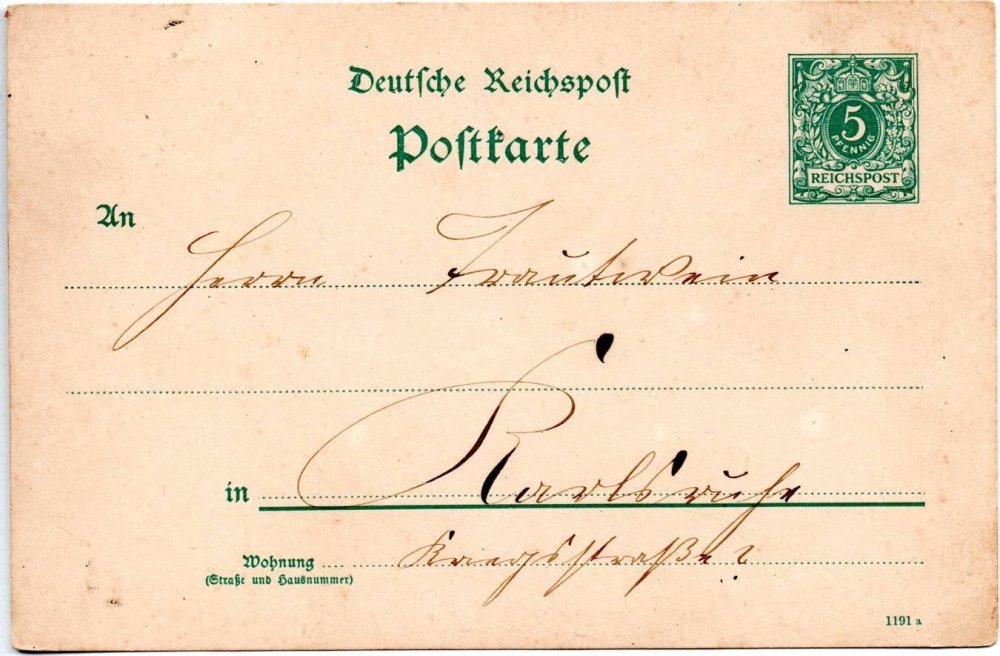 Deutsche Reichspost
Postkarte
5
PFENNIG
REICHSPOST
An
Herrn Trautwein
in Karlsruhe
Wohnung Kriegsstraße
(Straße und Hausnummer)
1191 a